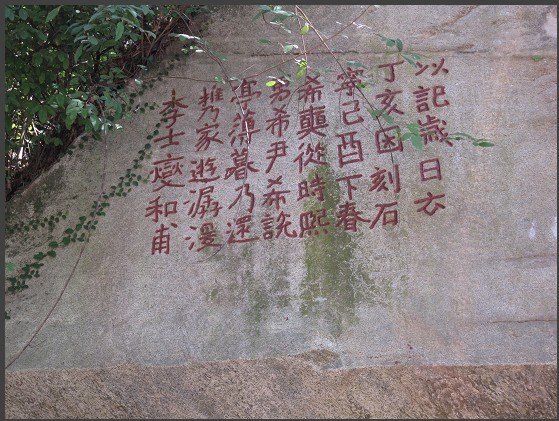 李士燮和甫
攜家遊潺湲
亭薄暮乃還
男希尹希說
希奭從時熙
寧己酉下春
丁亥因刻石
以記歲日云